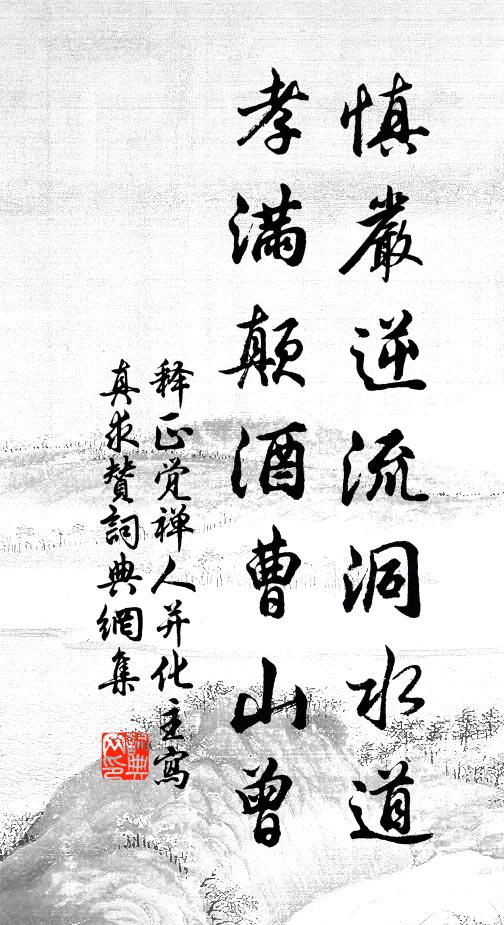 慎嚴逆流洞水道
孝滿顛酒曹山曾
释正觉禅人并化主寫
真求赞詞典網集